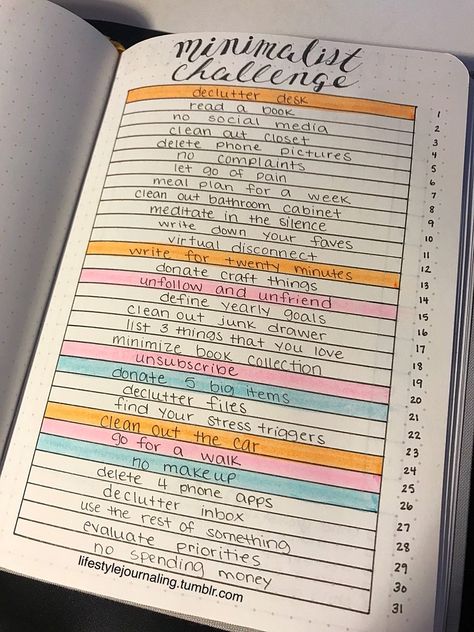 minimalist
challenge
declutter desk 1
read a book 2
no social media 3
clean out closet 4
delete phone pictures 5
no complaints 6
let go of pain 7
meal plan for a week 8
clean out bathroom cabinet 9
meditate in the silence 10
write down your faves 11
virtual disconnect 12
write for twenty minutes 13
donate craft things 14
unfollow and unfriend 15
define yearly goals 16
clean out junk drawer 17
list 3 things that you love 18
minimize book collection 19
unsubscribe 20
donate 5 big items 21
declutter files 22
find your stress triggers 23
clean out the car 24
go for a walk 25
no makeup 26
delete 4 phone apps 27
declutter inbox 28
use the rest of something 29
evaluate priorities 30
no spending money 31
lifestylejournaling.tumblr.com